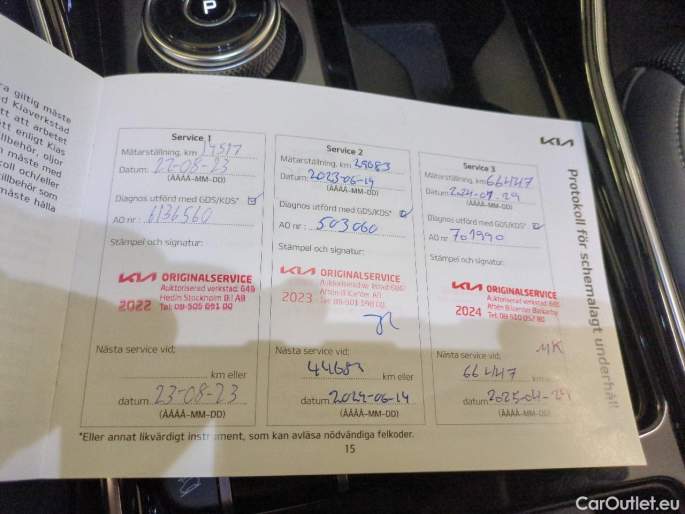 P
ra giltig måste
d Kiaverkstad
tt att arbetet
ått enligt Kias
llbehör, oljor
n måste med
coll och/eller
tillbehör som
måste hålla
KIA
Protokoll för schemalagt underhåll
Service 1
Mätarställning, km 14517
Datum: 22-08-23
(ÅÅÅÅ-MM-DD)
Diagnos utförd med GDS/KDS*
AO nr : 6136560
Stämpel och signatur:
KIA ORIGINALSERVICE
Auktoriserad verkstad 646
2022 Hedin Stockholm Bil AB
Tel: 08-505 691 00
Nästa service vid:
km eller
datum 23-08-23
(ÅÅÅÅ-MM-DD)
Service 2
Mätarställning, km 29683
Datum: 2023-06-14
(ÅÅÅÅ-MM-DD)
Diagnos utförd med GDS/KDS*
AO nr : 503060
Stämpel och signatur:
KIA ORIGINALSERVICE
2023
Nästa service vid:
44683 km eller
datum 2024-06-14
(ÅÅÅÅ-MM-DD)
Service 3
Mätarställning, km
Datum:
(ÅÅÅÅ-MM-DD)
Diagnos utförd med GDS/KDS*
AO nr 701990
Stämpel och signatur:
KIA ORIGINALSERVICE
Auktoriserad verkstad
2024
Nästa service vid:
km eller
datum
(ÅÅÅÅ-MM-DD)
*Eller annat likvärdigt instrument, som kan avläsa nödvändiga felkoder.
15
CarOutlet.eu